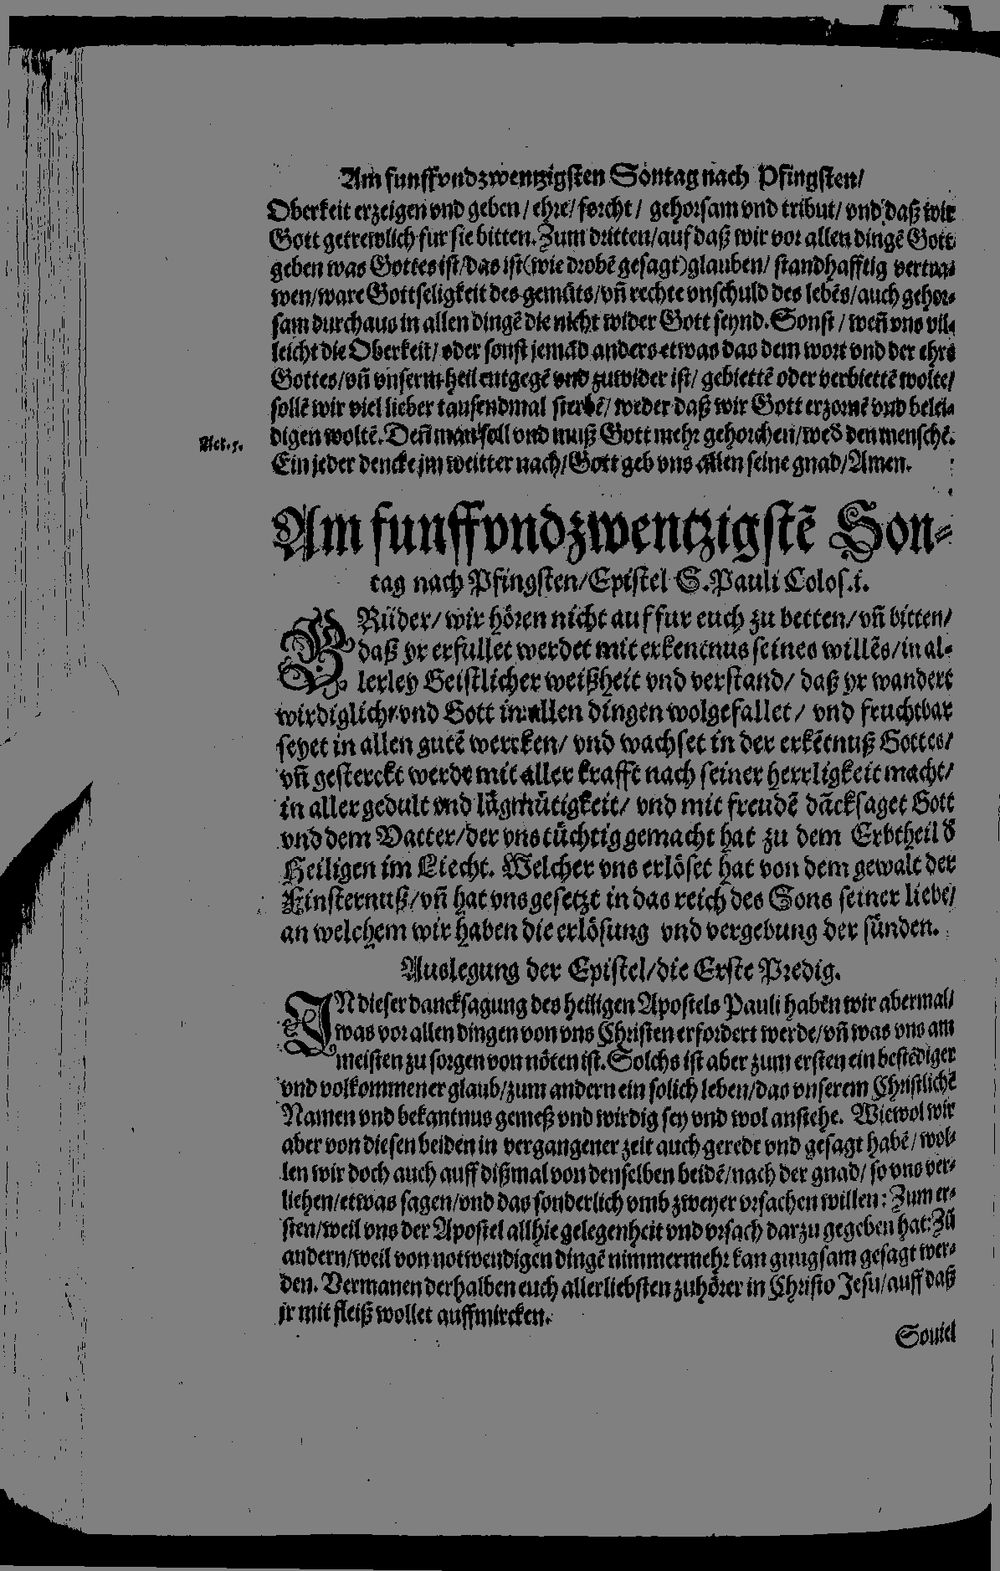 Am funffvndzwentzigsten Sontag nach Pfingsten/
Oberkeit erzeigen vnd geben/ ehre/ forcht/ gehorsam vnd tribut/ vnd daß wir
Gott getrewlich fur sie bitten. Zum dritten/ auf daß wir vor allen dingē Gott
geben was Gottes ist/ das ist (wie drobē gesagt) glauben/ standhafftig vertra-
wen/ ware Gottseligkeit des gemüts/ vñ rechte vnschuld des lebēs/ auch gehor-
sam durchaus in allen dingē die nicht wider Gott seynd. Sonst/ weñ vns vil-
leicht die Oberkeit/ oder sonst jemād anders etwas das dem wort vnd der ehre
Gottes/ vñ vnserm heil entgegē vnd zuwider ist/ gebiettē oder verbiettē wolte/
sollē wir viel lieber tausendmal sterbē/ weder daß wir Gott erzornē vnd belei-
digen woltē. Deñ man soll vnd muß Gott mehr gehorchen/ wed den menschē.
Act. 5.
Ein jeder dencke jm weitter nach/ Gott geb vns allen seine gnad/ Amen.
Am funffvndzwentzigstē Son-
tag nach Pfingsten/ Epistel S. Pauli Colos. i.
BRüder/ wir hören nicht auf fur euch zu betten/ vñ bitten/
daß yr erfullet werdet mit erkentnus seines willēs/ in al-
lerley Geistlicher weißheit vnd verstand/ daß yr wandert
wirdiglich/ vnd Gott in allen dingen wolgefallet/ vnd fruchtbar
seyet in allen gutē wercken/ vnd wachset in der erkētnuß Gottes/
vñ gesterckt werdt mit aller krafft nach seiner herrligkeit macht/
in aller gedult vnd lāgmütigkeit/ vnd mit freudē dācksaget Gott
vnd dem Vatter/ der vns tüchtig gemacht hat zu dem Erbtheil d
Heiligen im Liecht. Welcher vns erlöset hat von dem gewalt der
Finsternuß/ vñ hat vns gesetzt in das reich des Sons seiner liebe/
an welchem wir haben die erlösung vnd vergebung der sünden.
Auslegung der Epistel/ die Erste Predig.
IN dieser dancksagung des heiligen Apostels Pauli haben wir abermal/
was vor allen dingen von vns Christen erfordert werde/ vñ was vns am
meisten zu sorgen von nöten ist. Solchs ist aber zum ersten ein bestēdiger
vnd volkommener glaub/ zum andern ein solich leben/ das vnserem Christlichē
Namen vnd bekantnus gemeß vnd wirdig sey vnd wol anstehe. Wiewol wir
aber von diesen beiden in vergangener zeit auch geredt vnd gesagt habē/ wol-
len wir doch auch auff dißmal von denselben beidē/ nach der gnad/ so vns ver-
liehen/ etwas sagen/ vnd das sonderlich vmb zweyer vrsachen willen: Zum er-
sten/ weil vns der Apostel allhie gelegenheit vnd vrsach darzu gegeben hat: Zū
andern/ weil von notwendigen dingē nimmermehr kan gnugsam gesagt wer-
den. Vermanen derhalben euch allerliebsten zuhörer in Christo Jesu/ auff daß
jr mit fleiß wollet auffmircken.
Souiel